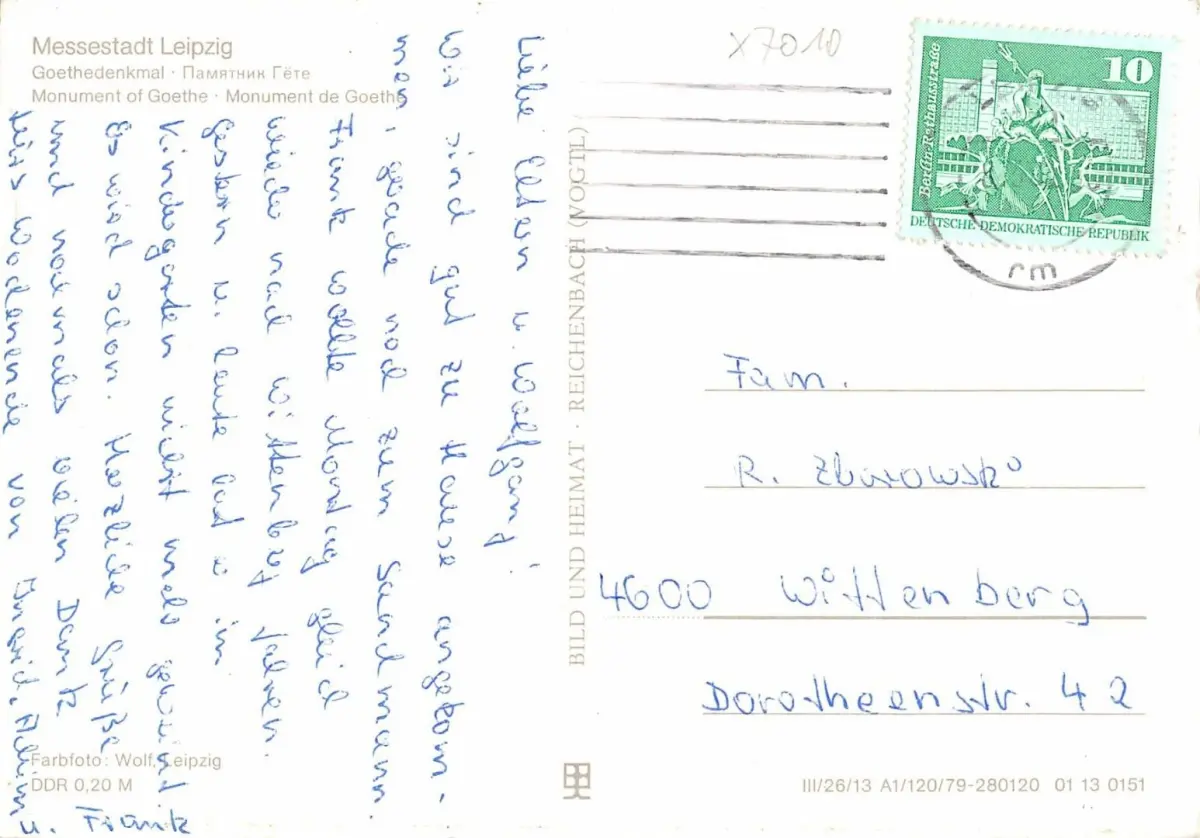 Messestadt Leipzig
Goethedenkmal · Памятник Гёте
Monument of Goethe · Monument de Goethe
Liebe Eltern u. Wolfgang!
Wir sind gut zu Hause angekom-
men, gerade noch zum Sandmann.
Frank wollte Montag gleich
wieder nach Wittenberg fahren.
Gestern u. heute hat er im
Kindergarten nicht mehr geweint.
Es wird schon. Herzliche Grüße
und nochmals vielen Dank
fürs Wochenende von Ingrid, Achim
u. Frank
Farbfoto: Wolf, Leipzig
DDR 0,20 M
BILD UND HEIMAT · REICHENBACH (VOGTL)
X7010
10
Berlin-Rathausstraße
DEUTSCHE DEMOKRATISCHE REPUBLIK
rm
Fam.
R. Zburowski
4600 Wittenberg
Dorotheenstr. 42
III/26/13 A1/120/79-280120 01 13 0151